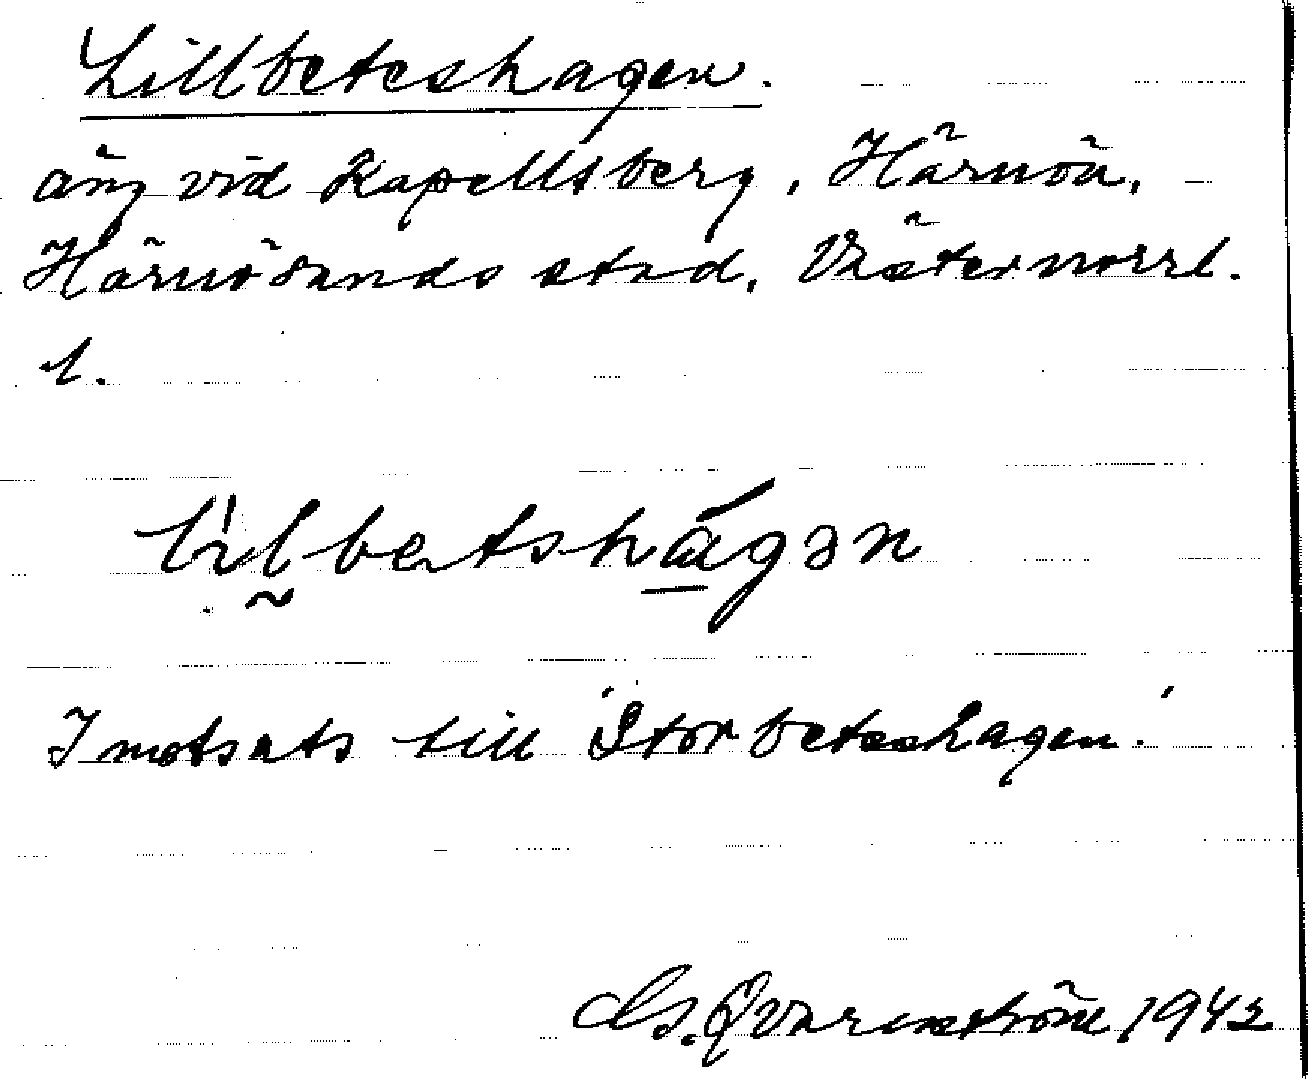 Lillbeteshagen.
äng vid Kapellsberg, Härnön,
Härnösands stad, Västernorrl.
l.
lìlbetshágən
I motsats till 'Storbeteshagen.'
Qvarnström 1942